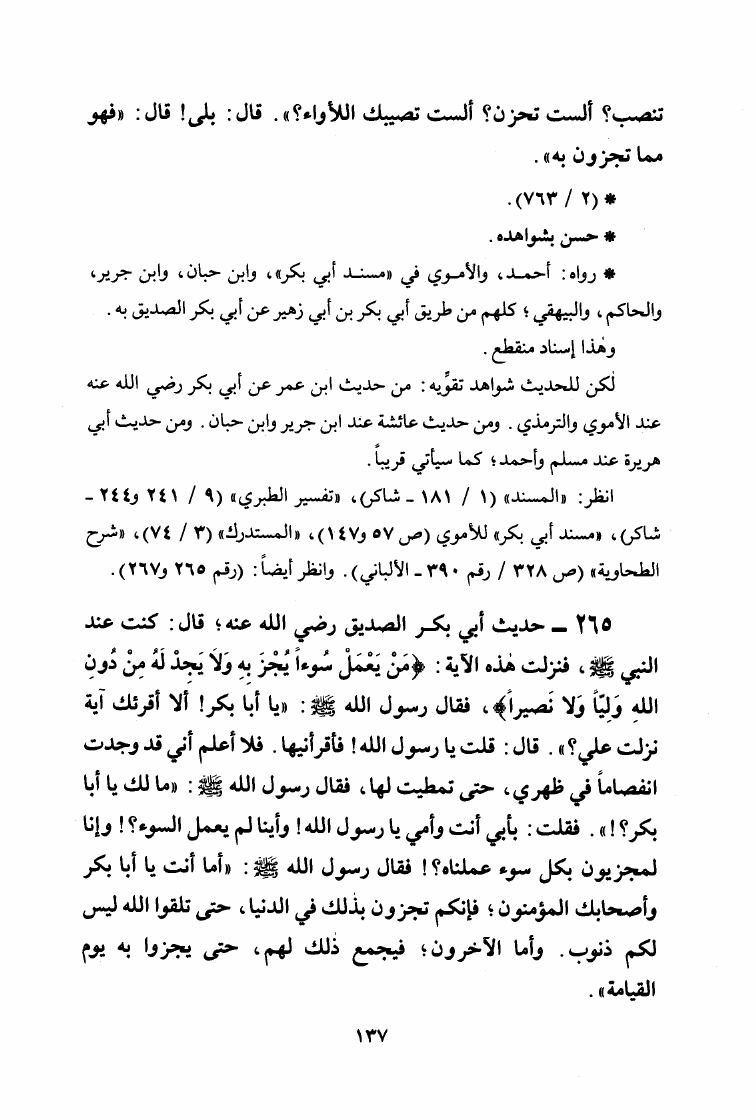 تنصب؟ ألست تحزن؟ ألست تصيبك اللأواء؟». قال: بلى! قال: «فهو
مما تجزون به».
* (٢ / ٧٦٣).
* حسن بشواهده.
* رواه: أحمد، والأموي في «مسند أبي بكر»، وابن حبان، وابن جرير،
والحاكم، والبيهقي؛ كلهم من طريق أبي بكر بن أبي زهير عن أبي بكر الصديق به.
وهٰذا إسناد منقطع.
لٰكن للحديث شواهد تقوِّيه: من حديث ابن عمر عن أبي بكر رضي الله عنه
عند الأموي والترمذي. ومن حديث عائشة عند ابن جرير وابن حبان. ومن حديث أبي
هريرة عند مسلم وأحمد؛ كما سيأتي قريباً.
انظر: «المسند» (١ / ١٨١ ـ شاكر)، «تفسير الطبري» (٩ / ٢٤١ و٢٤٤ ـ
شاكر)، «مسند أبي بكر» للأموي (ص ٥٧ و١٤٧)، «المستدرك» (٣ / ٧٤)، «شرح
الطحاوية» (ص ٣٢٨ / رقم ٣٩٠ ـ الألباني). وانظر أيضاً: (رقم ٢٦٥ و٢٦٧).
٢٦٥ ـ حديث أبي بكر الصديق رضي الله عنه؛ قال: كنت عند
النبي ﷺ، فنزلت هٰذه الآية: ﴿مَنْ يَعْمَلْ سُوءاً يُجْزَ بِهِ وَلَا يَجِدْ لَهُ مِنْ دُونِ
اللهِ وَلِيّاً وَلَا نَصيراً﴾، فقال رسول الله ﷺ: «يا أبا بكر! ألا أقرئك آية
نزلت علي؟». قال: قلت يا رسول الله! فأقرأنيها. فلا أعلم أني قد وجدت
انفصاماً في ظهري، حتى تمطيت لها، فقال رسول الله ﷺ: «ما لك يا أبا
بكر؟!». فقلت: بأبي أنت وأمي يا رسول الله! وأينا لم يعمل السوء؟! وإنا
لمجزيون بكل سوء عملناه؟! فقال رسول الله ﷺ: «أما أنت يا أبا بكر
وأصحابك المؤمنون؛ فإنكم تجزون بذٰلك في الدنيا، حتى تلقوا الله ليس
لكم ذنوب. وأما الآخرون؛ فيجمع ذٰلك لهم، حتى يجزوا به يوم
القيامة».
١٣٧